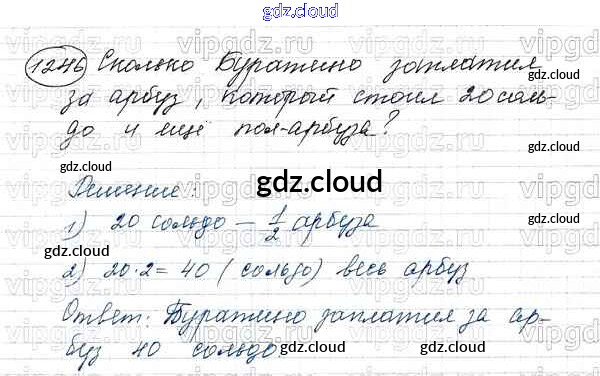 gdz.cloud
1246 Сколько Буратино заплатил
gdz.cloud gdz.cloud
за арбуз, который стоил 20 соль-
до и ещё пол-арбуза?
gdz.cloud
Решение:
gdz.cloud
1) 20 сольдо — 1/2 арбуза
gdz.cloud gdz.cloud
2) 20·2=40 (сольдо) весь арбуз
Ответ: Буратино заплатил за ар-
буз 40 сольдо
gdz.cloud gdz.cloud
gdz.cloud